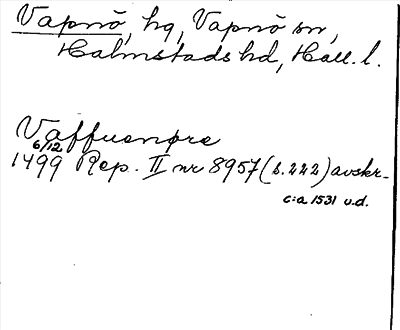 Vapnö, hg, Vapnö sn,
Halmstads hd, Hall. l.
Vaffuenøre
6/12
1499 Rep. II nr 8957 (s. 222) avskr.
c:a 1531 u.d.